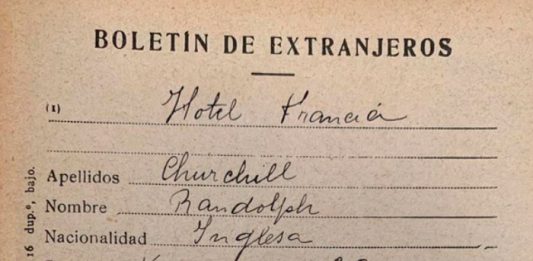 BOLETÍN DE EXTRANJEROS
(1) Hotel Francia
Apellidos Churchill
Nombre Randolph
Nacionalidad Inglesa
16 dup.º, bajo.